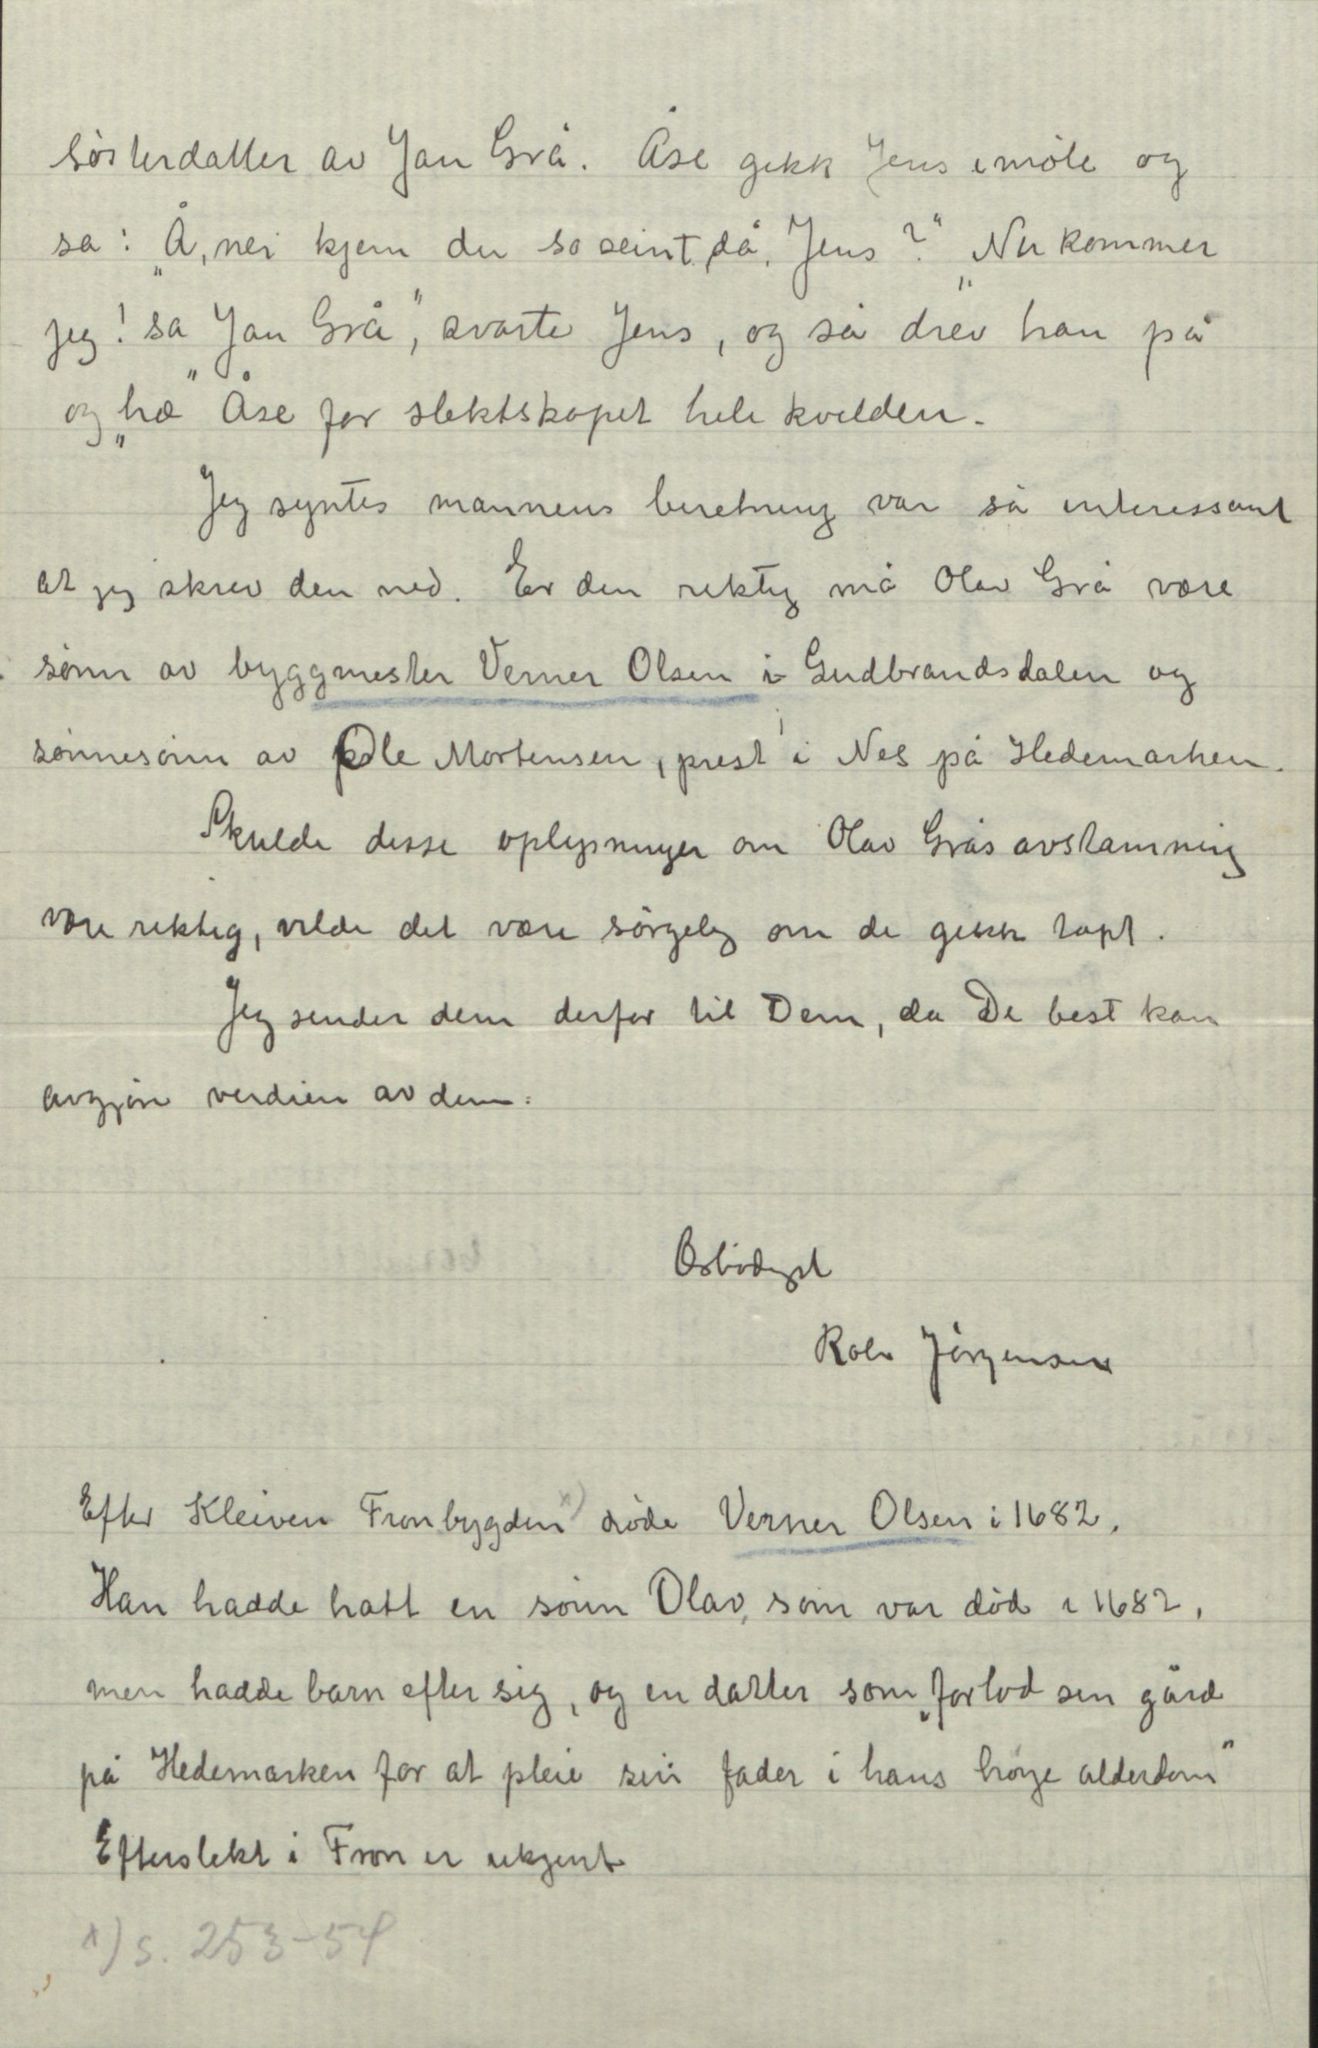 søsterdatter av Jan Grå. Åse gikk Jens imøte og
sa: „Å, nei kjem du so seint, då, Jens?" „Nu kommer
jeg! sa Jan Grå", svarte Jens, og så drev han på
og „hæ" Åse for slektskapet hele kvelden.
Jeg syntes mannens beretning var så interessant
at jeg skrev den ned. Er den riktig må Olav Grå være
sønn av byggmester Verner Olsen i Gudbrandsdalen og
sønnesønn av Ole Mortensen, prest i Nes på Hedemarken.
Skulde disse oplysninger om Olav Grås avstamning
være riktig, vilde det være sørgelig om de gikk tapt.
Jeg sender dem derfor til Dem, da De best kan
avgjøre verdien av dem.
Ærbødigst
Rolv Jørgensen
Efter Kleiven Fronbygden x) døde Verner Olsen i 1682.
Han hadde hatt en sønn Olav, som var død i 1682,
men hadde barn efter sig, og en datter som „forlod sin gård
på Hedemarken for at pleie sin fader i hans høye alderdom"
Efterslekt i Fron er ukjent
x) s. 253-54